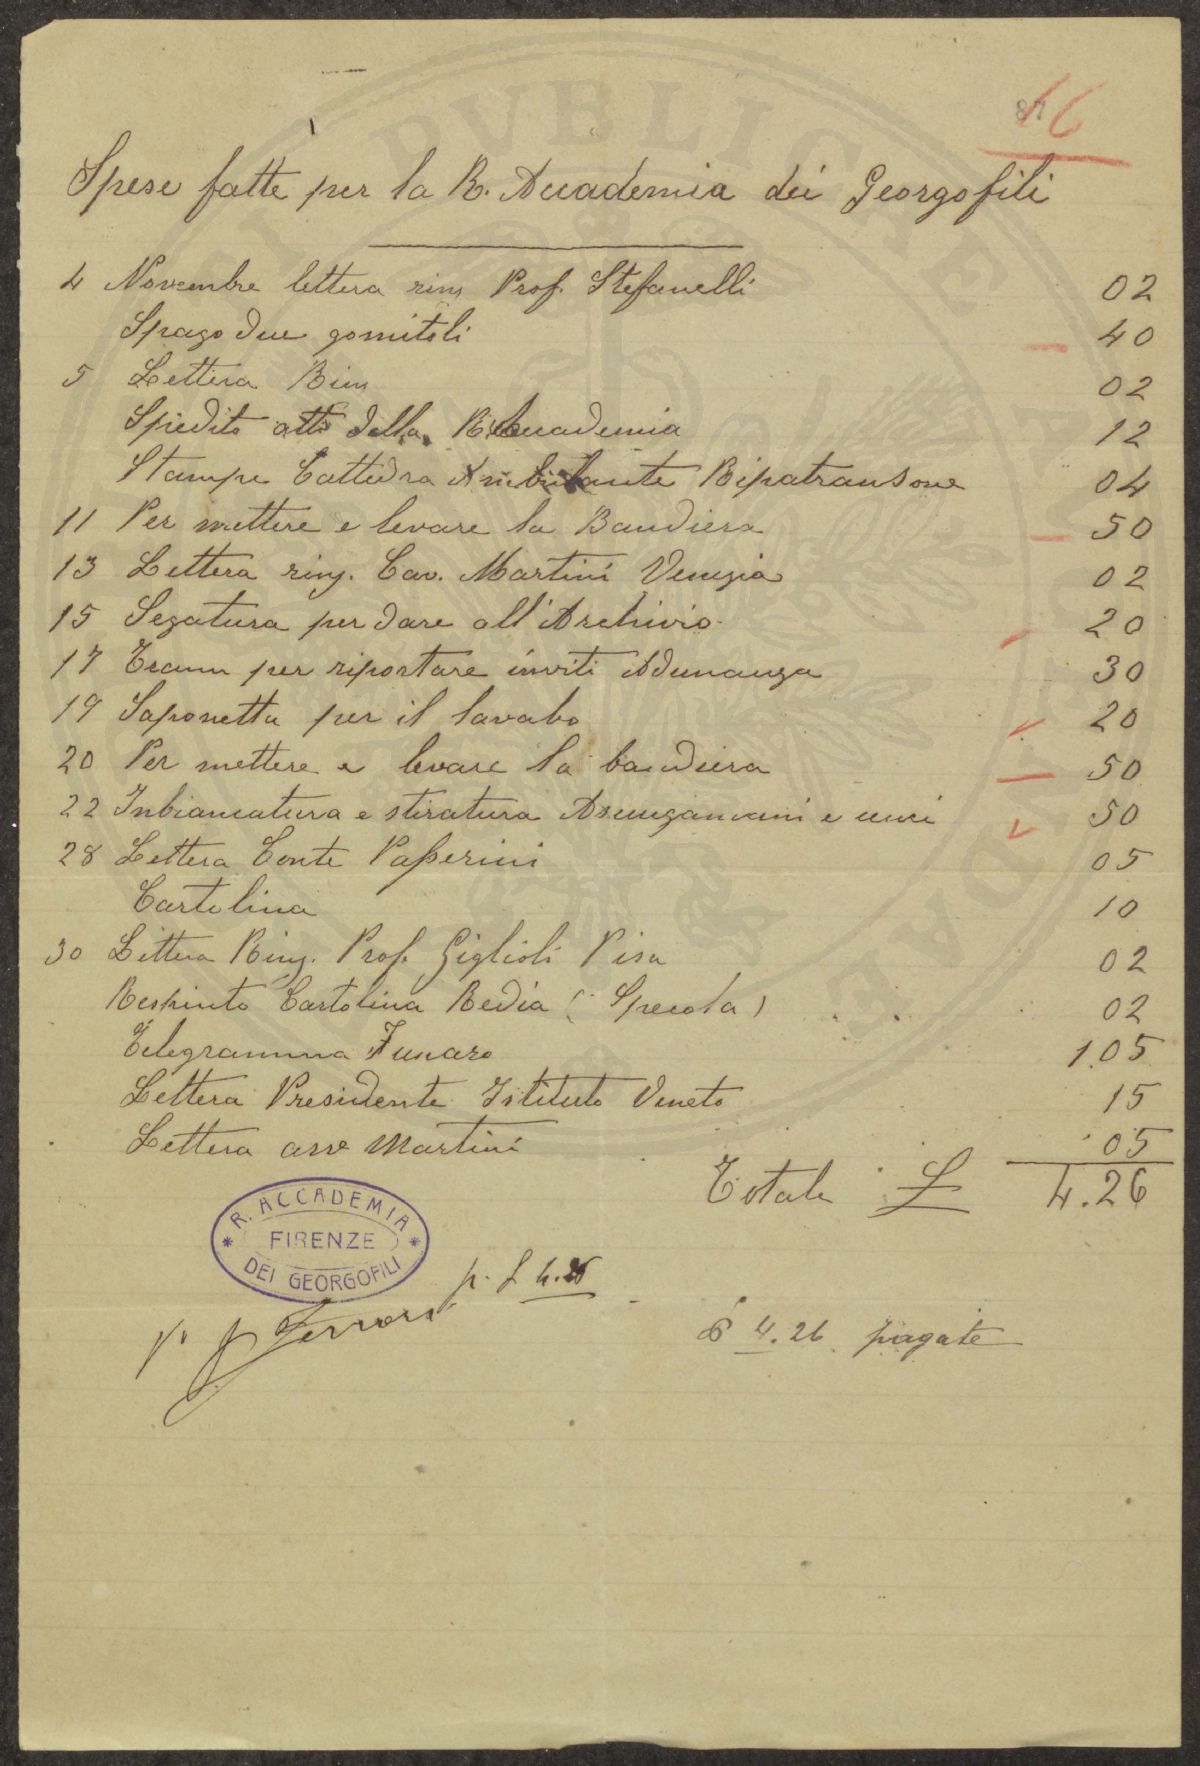 87 16
Spese fatte per la R. Accademia dei Georgofili
4 Novembre lettera ring Prof. Stefanelli 02
Spago due gomitoli 40
5 Lettera Ring 02
Spedito atti della R. Accademia 12
Stampe Cattedra Ambulante Ripatransone 04
11 Per mettere e levare la Bandiera 50
13 Lettera ring. Cav. Martini Venezia 02
15 Segatura per dare all'Archivio 20
17 Tramm per riportare inviti Adunanza 30
19 Saponetta per il lavabo 20
20 Per mettere e levare la bandiera 50
22 Inbiancatura e stiratura Asciugamani e 50
28 Lettera Conte Passerini 05
Cartolina 10
30 Lettera Ring. Prof. Giglioli Pisa 02
Respinto Cartolina Redia (Specola) 02
Telegramma Funaro 1.05
Lettera Presidente Istituto Veneto 15
Lettera avv Martini 05
Totale £ 4.26
R. ACCADEMIA
FIRENZE
DEI GEORGOFILI
p. £ 4.26
£ 4.26 pagate